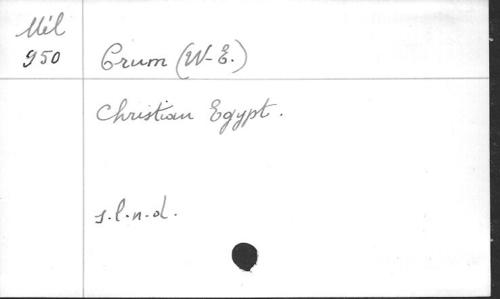 Mél
950
Crum (W-E.)
Christian Egypt.
s.l.n.d.